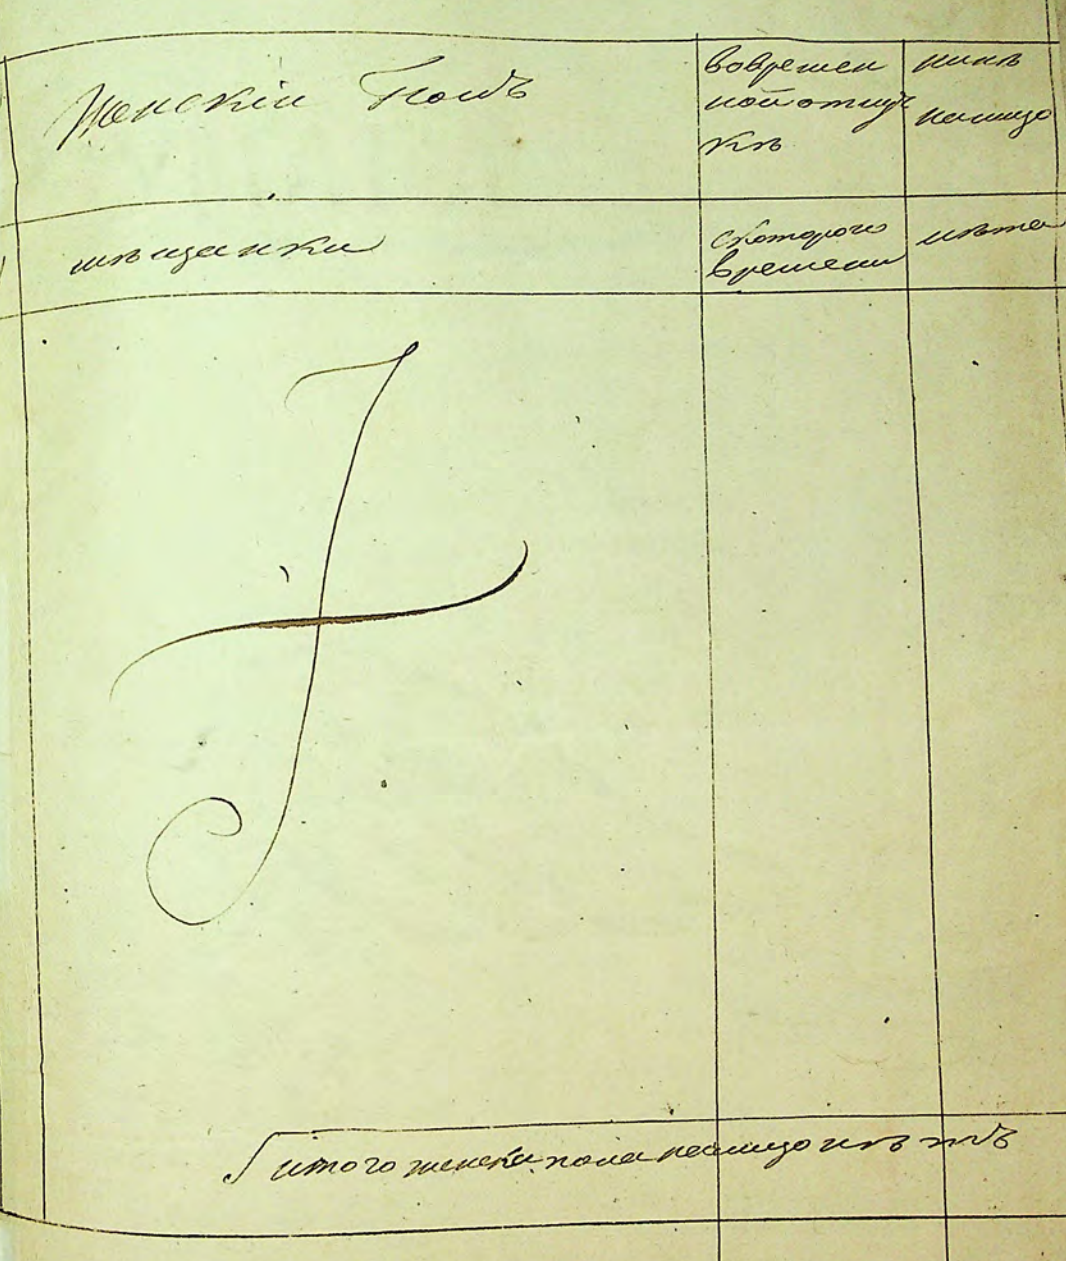 Женскій Полъ
вовремен
ной отлуч
кѣ
нынѣ
налицо
мѣщанки
скотораго
времени
лѣта
итого женска пола налицо